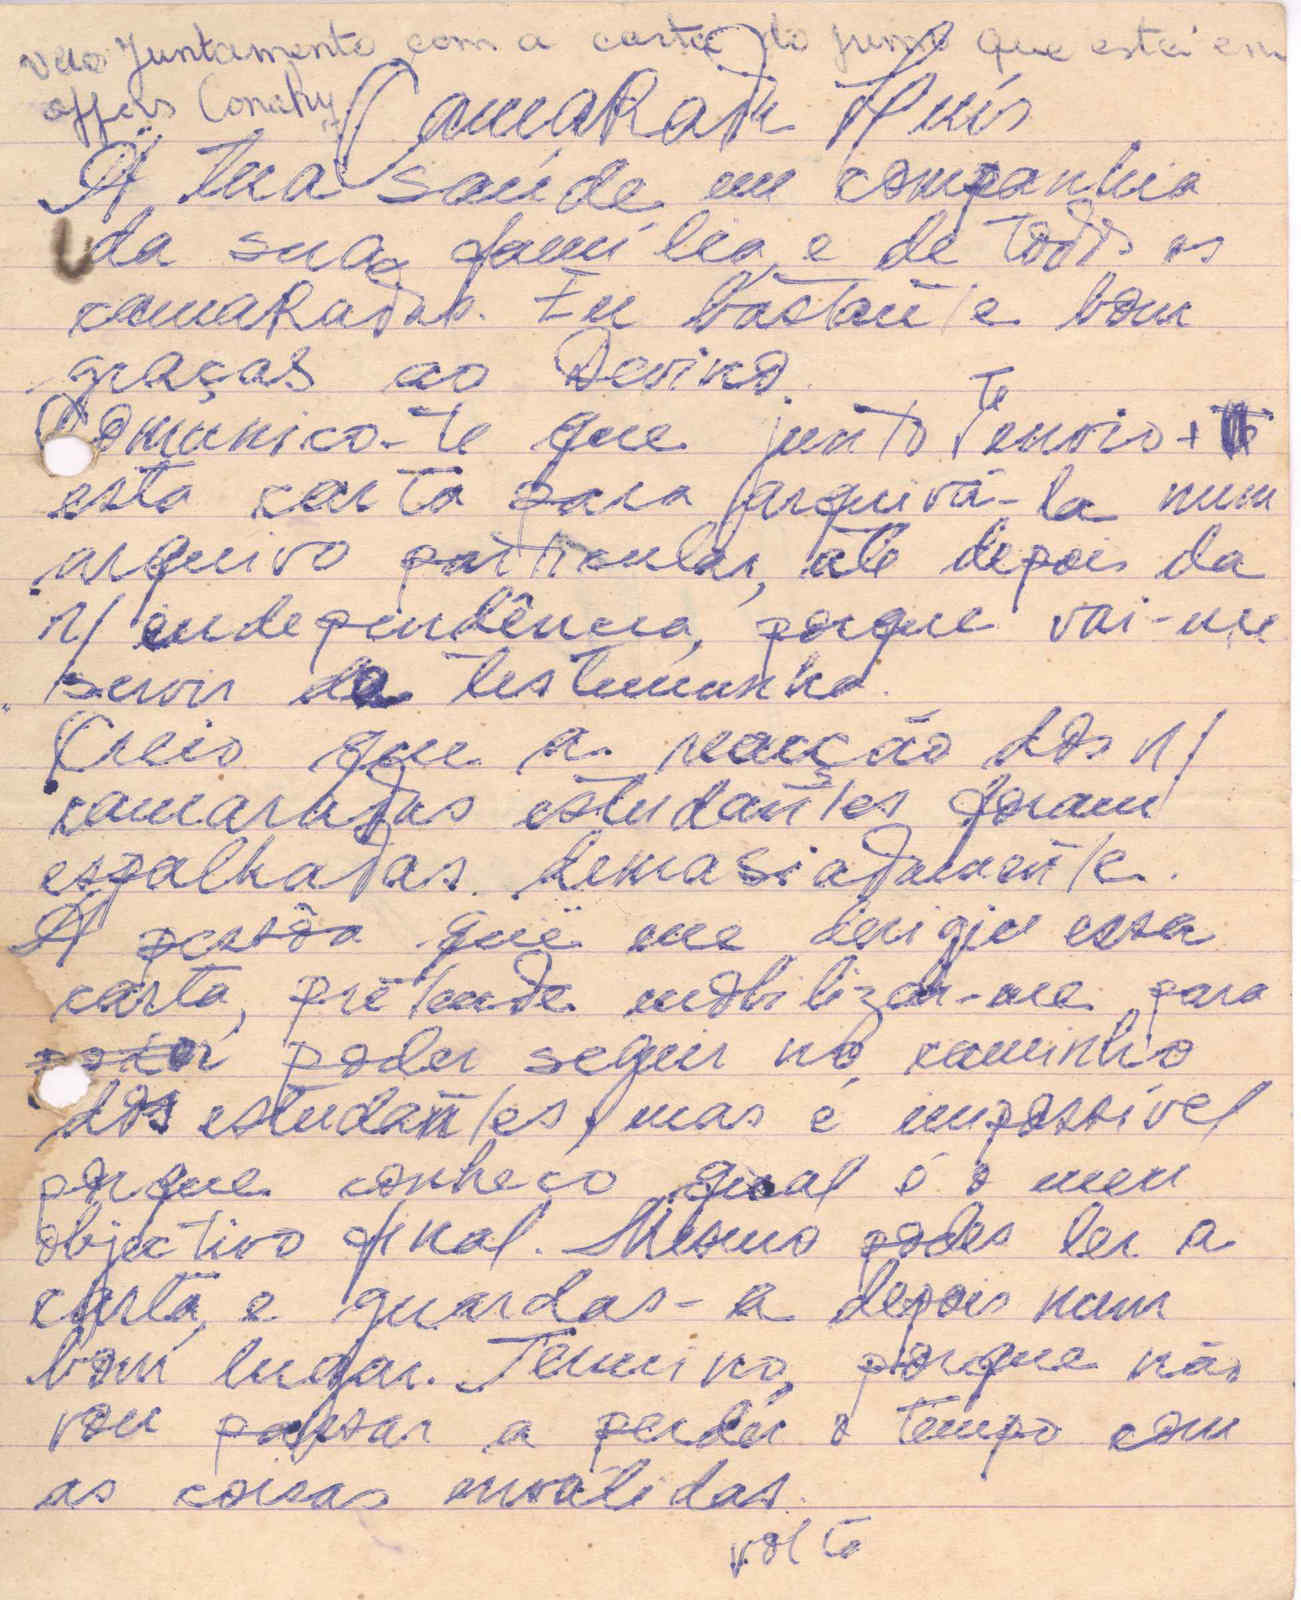 veio juntamente com a carta do que está em
Conakry
Camarada
A tua saúde em companhia
da sua família, e de todos os
camaradas. Eu bastante bem
graças ao Devino.
Comunico-te que junto te envio +
esta carta para arquivá-la num
arquivo particular, até depois da
n/ independência, porque vai-me
servir de testemunho.
Creio que a reacção dos n/
camaradas estudantes foram
espalhadas demasiadamente.
A pessôa que me derigiu essa
carta, pretende mobilizar-me para
poder seguir no caminho
dos estudantes, mas é impossível
porque conheço qual é o meu
objectivo final. Mesmo podes ler a
carta, e guardas-a depois num
bom lugar. Termino, porque não
vou passar a perder o tempo com
as coisas inválidas.
volta